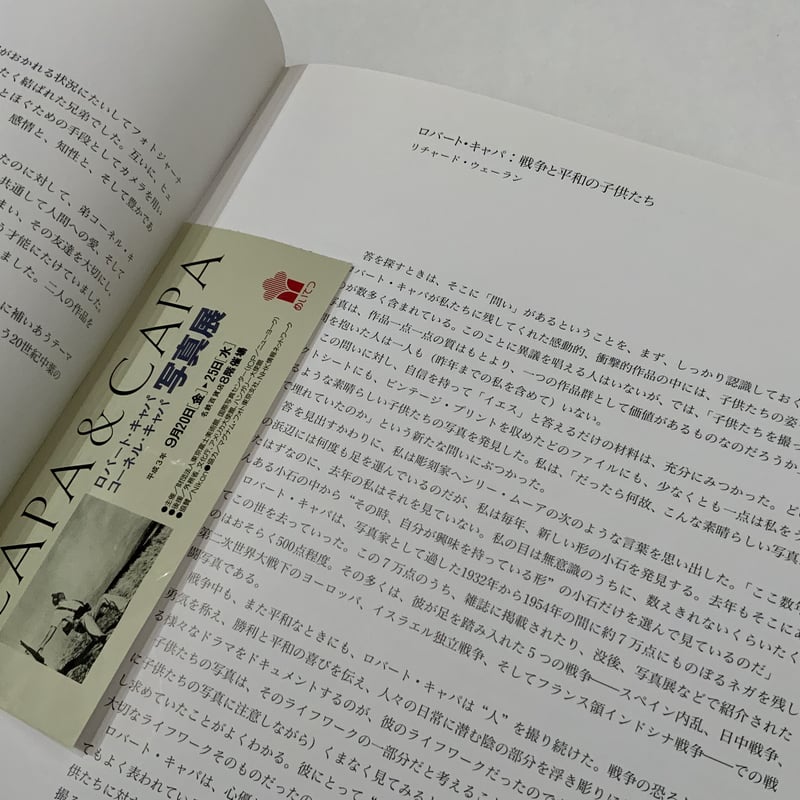 がおかれる状況にたいしてフォトジャーナ
たく結ばれた兄弟でした。互いに、ヒュ
とほぐための手段としてカメラを用い
感情と、知性と、そして豊かであ
たのに対して、弟コーネル・キ
共通して人間への愛、そして
まい、その友達を大切にし、
う才能にたけていました。
ました。二人の作品を
に補いあうテーマ
う20世紀中葉の
CAPA & CAPA
ロバート・キャパ
コーネル・キャパ
写真展
平成3年 9月20日[金]▸25日[水]
名鉄百貨店8階催場
めいてつ
ロバート・キャパ：戦争と平和の子供たち
リチャード・ウェーラン
答を探すときは、そこに「問い」があるということを、まず、しっかり認識しておく
バート・キャパが私たちに残してくれた感動的、衝撃的作品の中には、子供たちの姿
のが数多く含まれている。このことに異議を唱える人はいないが、では、「子供たちを撮っ
写真は、作品一点一点の質はもとより、一つの作品群として価値があるものなのだろうか
問を抱いた人は一人も（昨年までの私を含めて）いない。
この問いに対し、自信を持って「イエス」と答えるだけの材料は、充分にみつかった。ど
ットシートにも、ビンテージ・プリントを収めたどのファイルにも、少なくとも一点は私をう
るような素晴らしい子供たちの写真を発見した。私は、「だったら何故、こんな素晴らしい写真
で埋れていたのか」という新たな問いにぶつかった。
答を見出すかわりに、私は彫刻家ヘンリー・ムーアの次のような言葉を思い出した。「ここ数年
の浜辺には何度も足を運んでいるのだが、私は毎年、新しい形の小石を発見する。去年もそこにあ
たはずなのに、去年の私はそれを見ていない。私の目は無意識のうちに、数えきれないくらいたく
んある小石の中から“その時、自分が興味を持っている形”の小石だけを選んで見ているのだ」
ロバート・キャパは、写真家として過した1932年から1954年の間に約7万点にものぼるネガを残し
てこの世を去っていった。この7万点のうち、雑誌に掲載されたり、没後、写真展などで紹介された
のはおそらく500点程度。その多くは、彼が足を踏み入れた5つの戦争――スペイン内乱、日中戦争、
第二次世界大戦下のヨーロッパ、イスラエル独立戦争、そしてフランス領インドシナ戦争――での戦
闘写真である。
戦争中も、また平和なときにも、ロバート・キャパは“人”を撮り続けた。戦争の恐る
勇気を称え、勝利と平和の喜びを伝え、人々の日常に潜む陰の部分を浮き彫りに
る様々なドラマをドキュメントするのが、彼のライフワークだったので
子供たちの写真は、そのライフワークの一部分だと考えること
に子供たちの写真に注意しながら）くまなく見てみると
し求めていたことがよくわかる。彼にとって
大切なライフワークそのものだった
ロバート・キャパは、心優
てもよく表われてい
供たちに対す